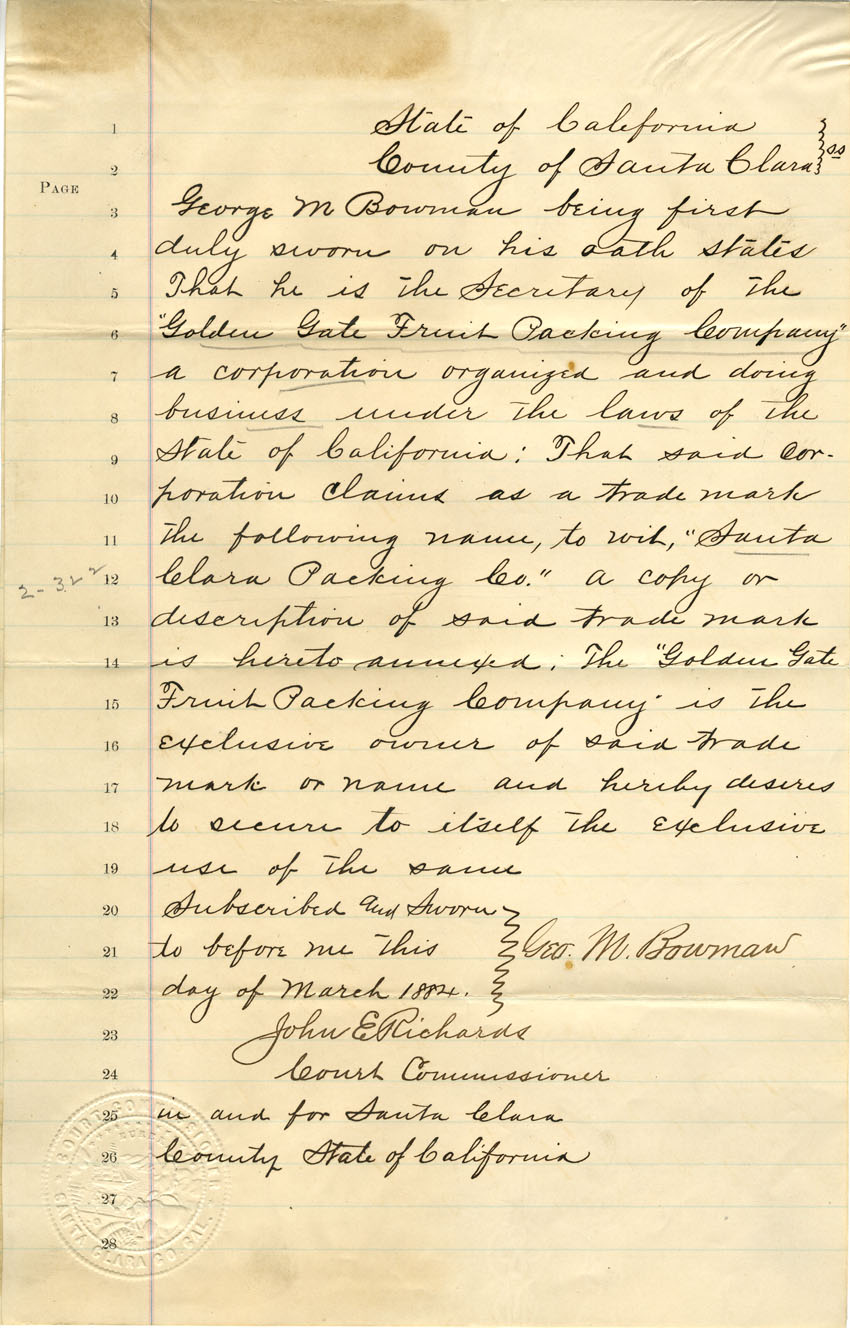 1 State of California
2 County of Santa Clara } ss
PAGE
3 George M Bowman being first
4 duly sworn on his oath states
5 That he is the Secretary of the
6 "Golden Gate Fruit Packing Company"
7 a corporation organized and doing
8 business under the laws of the
9 State of California: That said Cor-
10 poration claims as a trade mark
11 the following name, to wit, "Santa
2-322 12 Clara Packing Co." a copy or
13 discription of said trade mark
14 is hereto annexed; The "Golden Gate
15 Fruit Packing Company" is the
16 exclusive owner of said trade
17 mark or name and hereby desires
18 to secure to itself the exclusive
19 use of the same
20 Subscribed and Sworn
21 to before me this } Geo. M. Bowman
22 day of March 1884.
23 John E Richards
24 Court Commissioner
25 in and for Santa Clara
26 County State of California
27
28
COURT COMMISSIONER
SANTA CLARA CO. CAL.